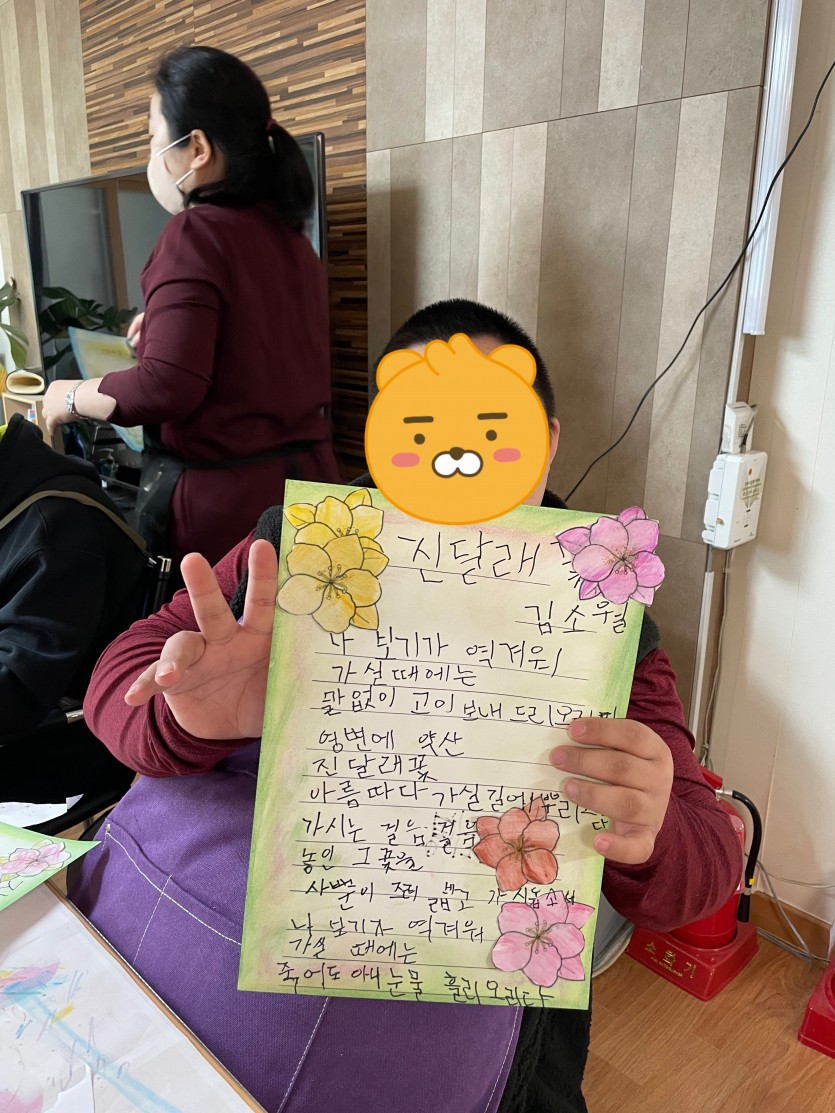 진달래
김소월
나 보기가 역겨워
가실 때에는
말없이 고이 보내 드리오리다
영변에 약산
진달래꽃
아름따다 가실길에 뿌리오리다
가시는 걸음 걸음
놓인 그꽃을
사뿐이 즈려 밟고 가시옵소서
나 보기가 역겨워
가실 때에는
죽어도 아니 눈물 흘리오리다
소화기